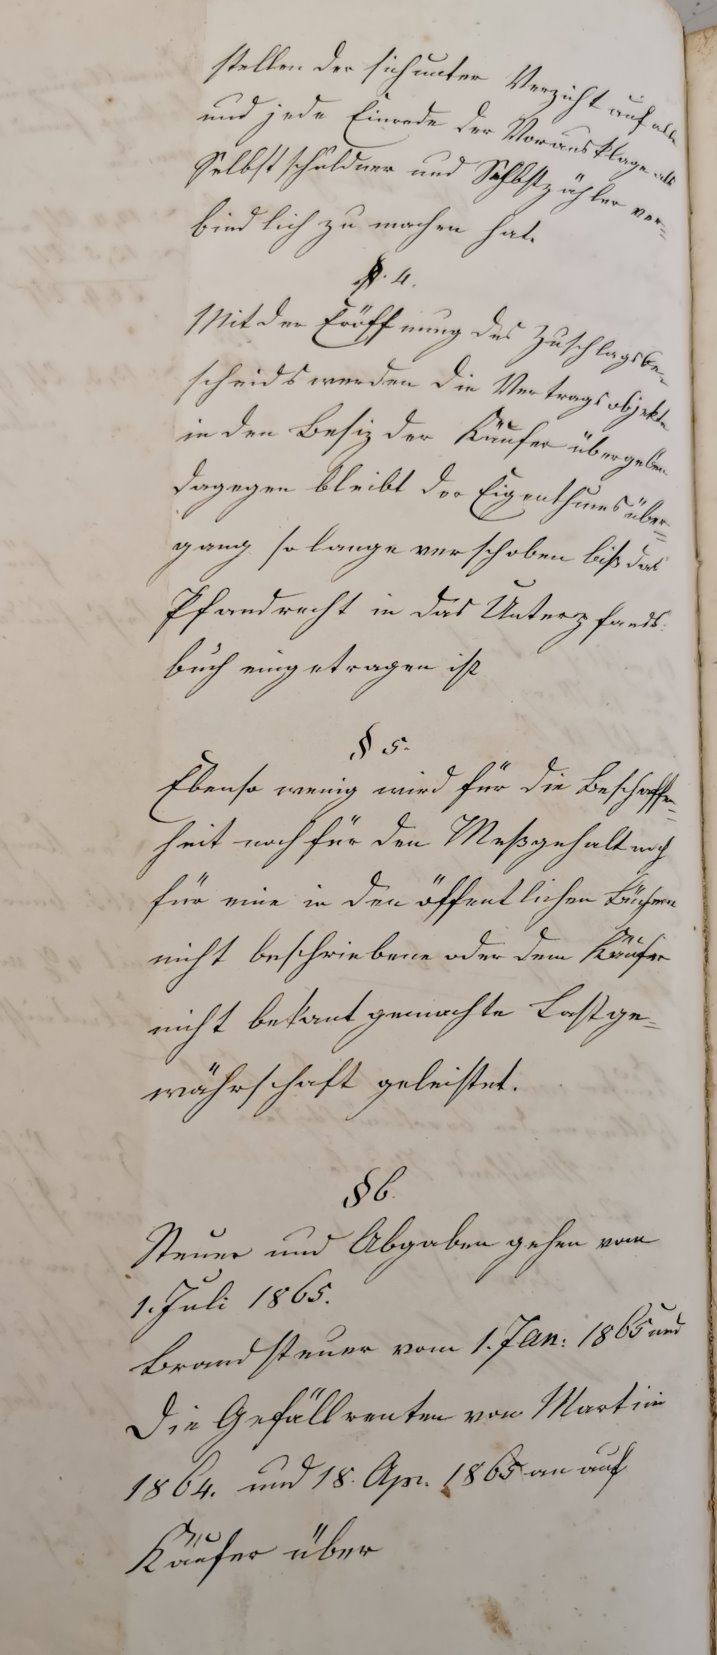 stellen der sich unter Verzicht auf alle
und jede Einrede der Vorausklage als
Selbstschuldner und Selbstzahler ver=
bindlich zu machen hat.
§. 4.
Mit der Eröffnung des Zuschlagsbe=
scheids werden die Vertragsobjekte
in den Besiz der Käufer übergeben
dagegen bleibt der Eigenthumsüber=
gang so lange verschoben biß das
Pfandrecht in das Unterpfands=
buch eingetragen ist
§ 5.
Ebenso wenig wird für die Beschaffen=
heit noch für den Meßgehalt noch
für eine in den öffentlichen Büchern
nicht beschriebene oder dem Käufer
nicht bekant gemachte Last ge=
währschaft geleistet.
§ 6.
Steuer und Abgaben gehen vom
1. Juli 1865.
Brandsteuer vom 1. Jan: 1865 und
die Gefällrenten von Martini
1864. und 18. Apr. 1865 an auf
Käufer über